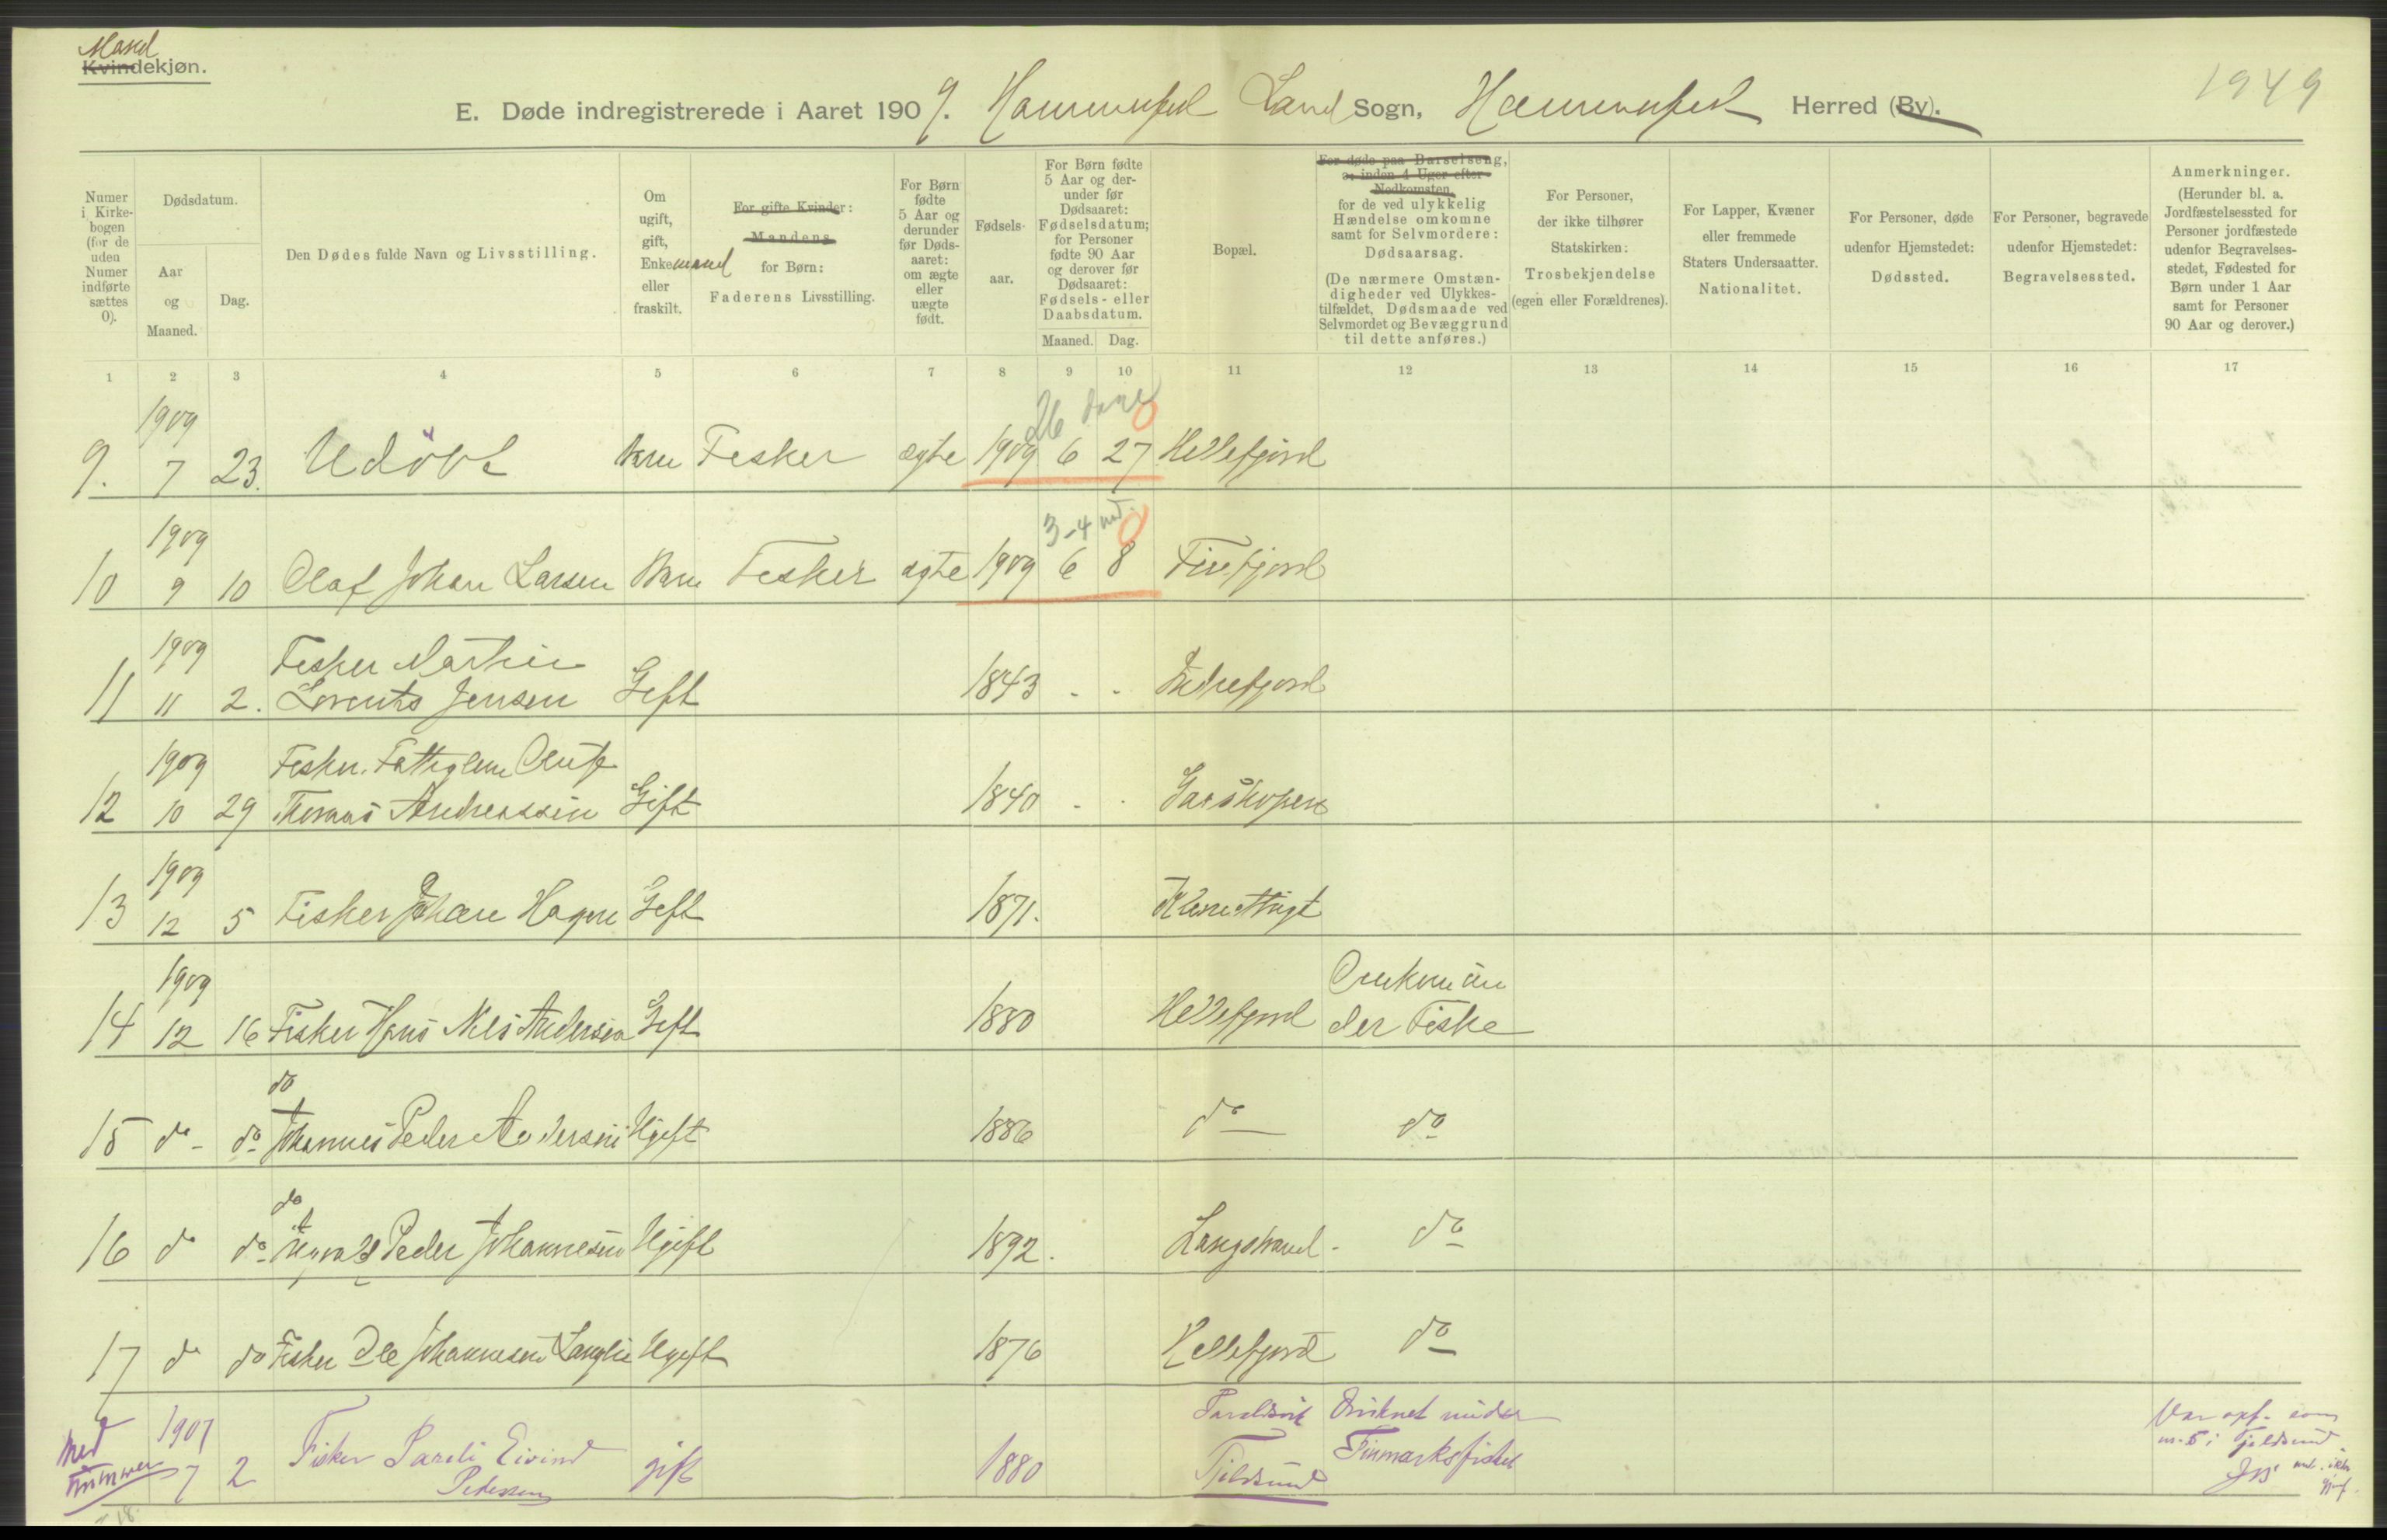 Mand
Kvindekjøn.
E. Døde indregistrerede i Aaret 1909. Hammerfest Land Sogn, Hammerfest Herred (By).
1949
Numer i Kirke-bogen (for de uden Numer indførte sættes 0).
Dødsdatum.
Aar og Maaned.
Dag.
Den Dødes fulde Navn og Livsstilling.
Om ugift, gift, Enkemand eller fraskilt.
For gifte Kvinder: Mandens for Børn: Faderens Livsstilling.
For Børn fødte 5 Aar og derunder før Døds-aaret: om ægte eller uægte født.
Fødsels-aar.
For Børn fødte 5 Aar og der-under før Dødsaaret: Fødselsdatum; for Personer fødte 90 Aar og derover før Dødsaaret: Fødsels- eller Daabsdatum.
Maaned. Dag.
Bopæl.
For døde paa Barselseng, a: inden 4 Uger efter Nedkomsten, for de ved ulykkelig Hændelse omkomne samt for Selvmordere: Dødsaarsag.
(De nærmere Omstæn-digheder ved Ulykkes-tilfældet, Dødsmaade ved Selvmordet og Bevæggrund til dette anføres.)
For Personer, der ikke tilhører Statskirken: Trosbekjendelse (egen eller Forældrenes).
For Lapper, Kvæner eller fremmede Staters Undersaatter. Nationalitet.
For Personer, døde udenfor Hjemstedet: Dødssted.
For Personer, begravede udenfor Hjemstedet: Begravelsessted.
Anmerkninger.
(Herunder bl. a. Jordfæstelsessted for Personer jordfæstede udenfor Begravelses-stedet, Fødested for Børn under 1 Aar samt for Personer 90 Aar og derover.)
1 2 3 4 5 6 7 8 9 10 11 12 13 14 15 16 17
1909 26 dage
9. 7 23. Udøbt Barn Fisker ægte 1909 6 27 Hellefjord
1909 3-4 md.
10 9 10 Olaf Johan Larsen Barn Fisker ægte 1909 6 8 Finfjord
1909 Fisker Martin
11 11 2. Lorents Jensen Gift 1843 - -
1909 Fisker. Fattiglem
12 10 29 Thomas Andreassen Gift 1840 - -
1909
13 12 5 Fisker Johan Hagen Gift 1871.
1909 Omkom un
14 12 16 Fisker Hans Nils Andersen Gift 1880 Hellefjord der Fiske
do
15 do - do Johannes Peder Andersen Ugift 1886 do do
do
16 do do Peder Johannesen Ugift 1892. Langstrand - do
17 do do Fisker Ole Johannesen Ugift 1876 Hellefjord do
Med 1907 Fisker Eivind gift 1880 Druknet under
nummer 7 2 Pedersen Tjeldsund Finmarksfisket
Var opf. som
nr. 5 i Tjeldsund.
18.